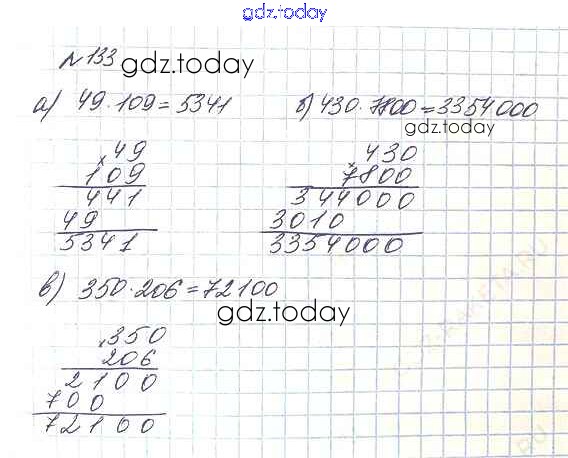 gdz.today
№133 gdz.today
а) 49·109=5341
б) 430·7800=3354000
gdz.today
×49
109
441
49
5341
×430
7800
344000
3010
3354000
в) 350·206=72100
gdz.today
×350
206
2100
700
72100